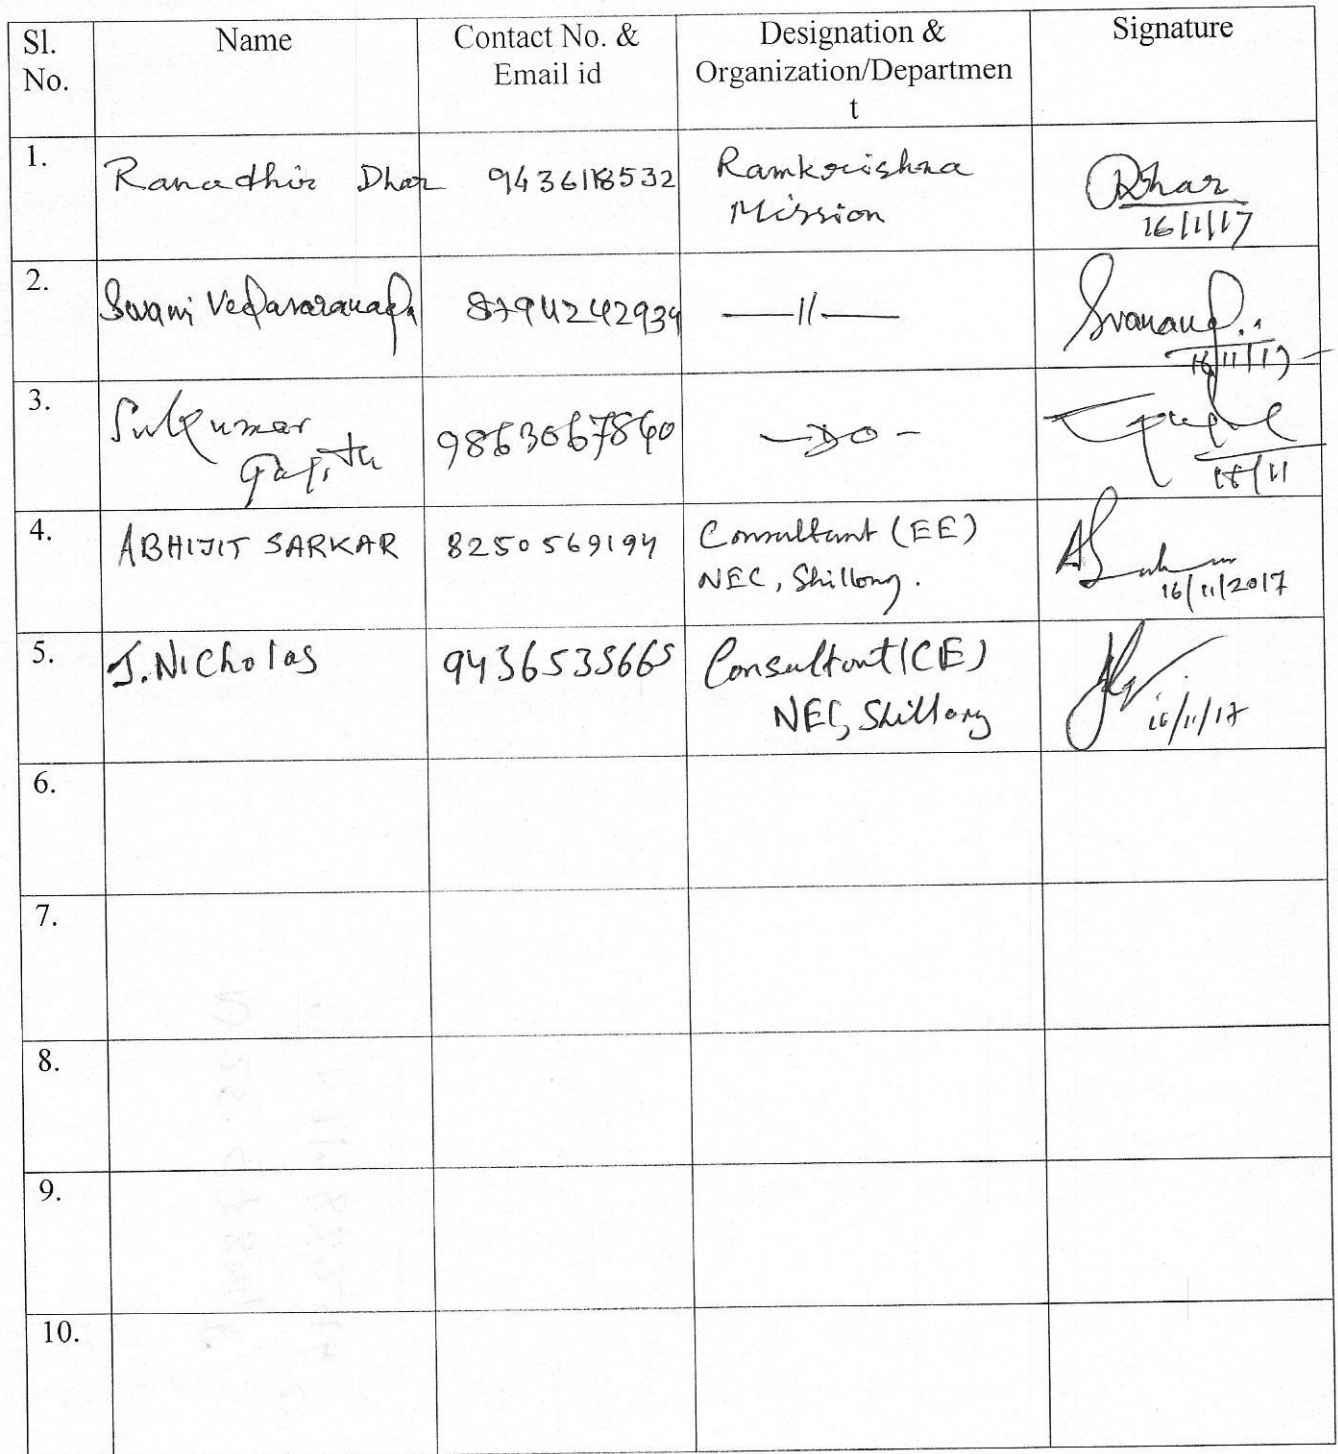 Sl. No.
Name
Contact No. & Email id
Designation & Organization/Departmen t
Signature
1.
Ranadhir Dhar
9436118532
Ramkrishna
Mission
Dhar
16/11/17
2.
Swami
8794242934
—〃—
16/11/17
3.
Sukumar
9863067840
—DO—
16/11
4.
ABHIJIT SARKAR
8250569194
Consultant (EE)
NEC, Shillong.
16/11/2017
5.
J. Nicholas
9436535665
Consultant (CE)
NEC, Shillong
16/11/17
6.
7.
8.
9.
10.